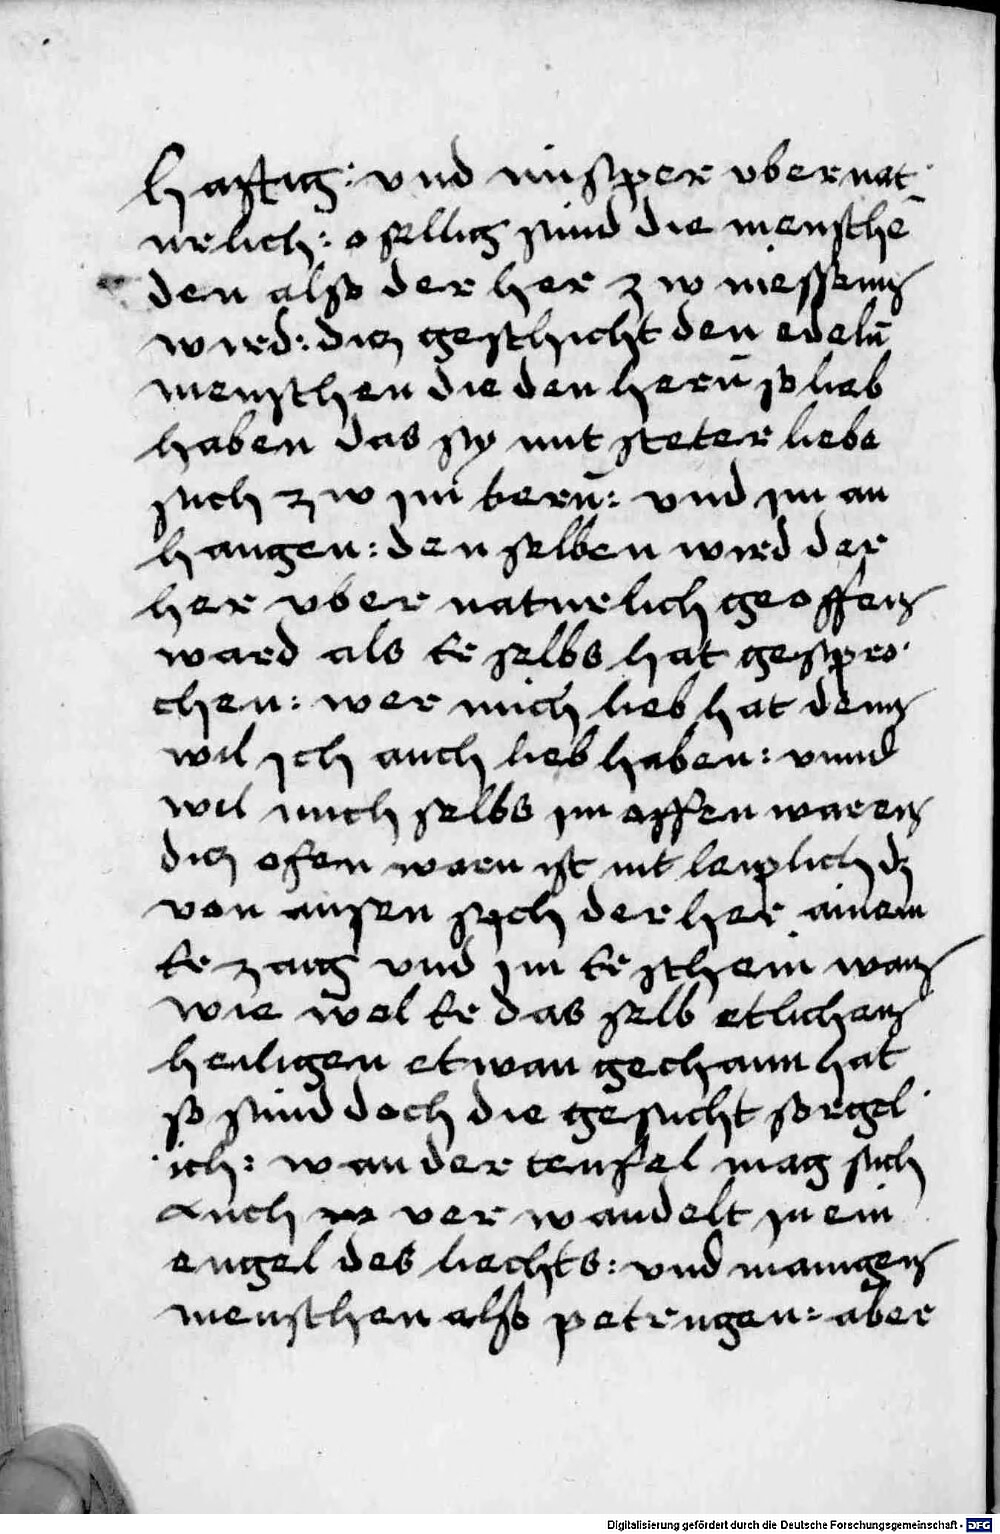 hafftig: vnd unsper vbernat
urlich: o sellig sind die mensthē
den also der her zw niessenn
wird: dis gesthicht den edelū
mensthen die den herū so lieb
haben das sy mit steter liebe
sich zw im kerū: vnd im an
hangen: den selben wird der
her vber naturlich geoffen
ward als er selbs hat gespro
chen: wer mich lieb hat dem
wil ich auch lieb haben: vnnd
wil mich selbs im offen waren
dis ofen warn ist nit leiplich dz
von aussen sych der her ainem
er zaig vnd im er sthein wan
wie wol er das selb etlichen
heiligen etwan gethann hat
so sind doch die gesicht sorgel
ich: wan der teufel mag sich
auch ver wandelt in ein
engel des liechts: vnd manigen
mensthen also petrugen: aber
Digitalisierung gefördert durch die Deutsche Forschungsgemeinschaft - DFG